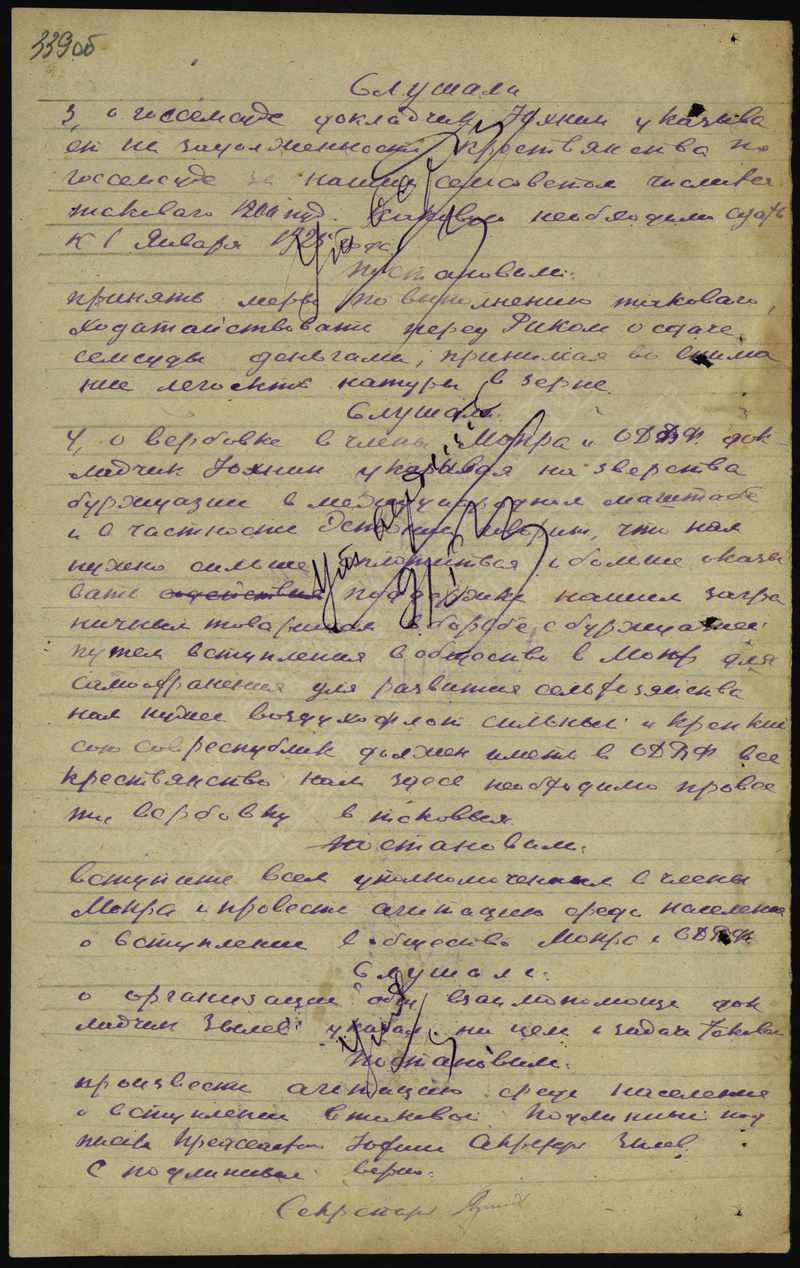 339об
Слушали
3, о госсемсуде докладчик Юхнин указыва
ет на задолженность крестьянства по
госсемсуде за нашим семсоветом числится
таковаго 1200 пуд. необходимо сдать
к 1 Января 1925 года
постановили:
принять меры по выполнению таковаго,
ходатайствовать перед Риком о сдаче
семсуды деньгами, принимая во внима
ние натуры в зерне
Слушали:
4, о вербовке в члены Мопра и ОДВФ док-
ладчик Юхнин указывая на зверства
буржуазии в международном маштабе
и в частности Эстонии говорит, что нам
нужно сильше и больше оказы
вать поддержки нашим загра
ничным товарищам в борьбе с буржуазией
путем вступления в общество в Мопр для
самоохранения для развития сельхозяйства
нам нужен воздухофлот сильный и крепкий
сою совреспублик должен иметь в ОДВФ все
крестьянство нам здесь необходимо провес
ти вербовку в таковыя
постановили:
вступить всем уполномоченным в члены
Мопра и провести агитацию среди населения
о вступлении в общество Мопра и ОДВФ
Слушали:
о организации общ взаимопомощи док
ладчик Зылев указал на цели и задачи таковой
Постановили:
произвести агитацию среди населения
о вступлении в таковой Подлинный под
писали Председатель Юхнин Секретарь Зылев
С подлинным верно:
Секретарь